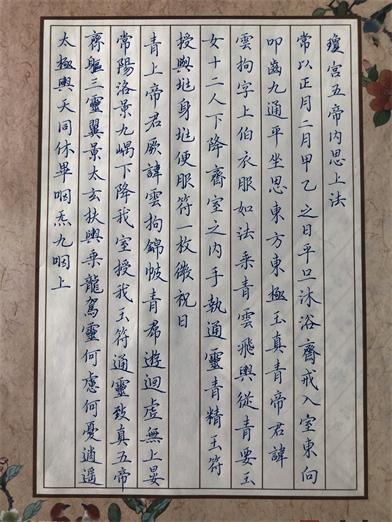 瓊宮五帝内思上法
常以正月二月甲乙之日平旦沐浴齋戒入室東向
叩齒九通平坐思東方東極玉真青帝君諱
雲拘字上伯衣服如法乘青雲飛輿從青要玉
女十二人下降齋室之内手執通靈青精玉符
授與兆身兆便服符一枚微祝曰
青上帝君厥諱雲拘錦帔青帬遊迴虛無上晏
常陽洛景九嵎下降我室授我玉符通靈致真五帝
齊軀三靈翼景太玄扶輿乘龍駕靈何慮何憂逍遥
太極與天同休畢咽炁九咽止